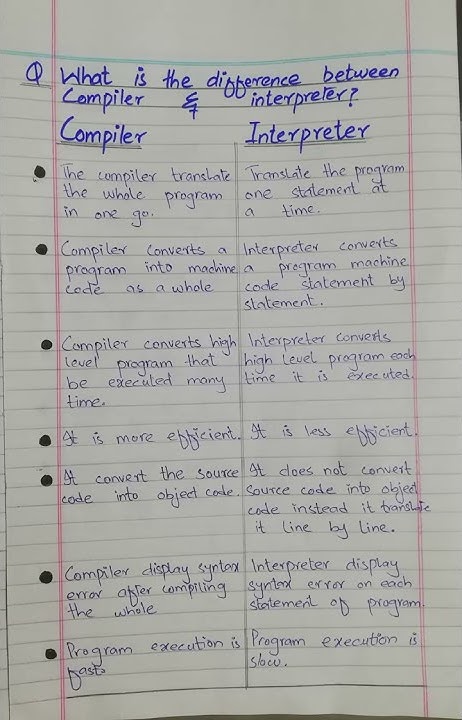 Q What is the difference between
Compiler & interpreter?
Compiler
Interpreter
The compiler translate
the whole program
in one go.
Translate the program
one statement at
a time.
Compiler converts a
program into machine
code as a whole
Interpreter converts
a program machine
code statement by
statement.
Compiler converts high
level program that
be executed many
time.
Interpreter converts
high level program each
time it is executed.
It is more efficient.
It is less efficient.
It convert the source
code into object code.
It does not convert
source code into object
code instead it translate
it line by line.
Compiler display syntax
error after compiling
the whole
Interpreter display
syntax error on each
statement of program.
Program execution is
fast.
Program execution is
slow.